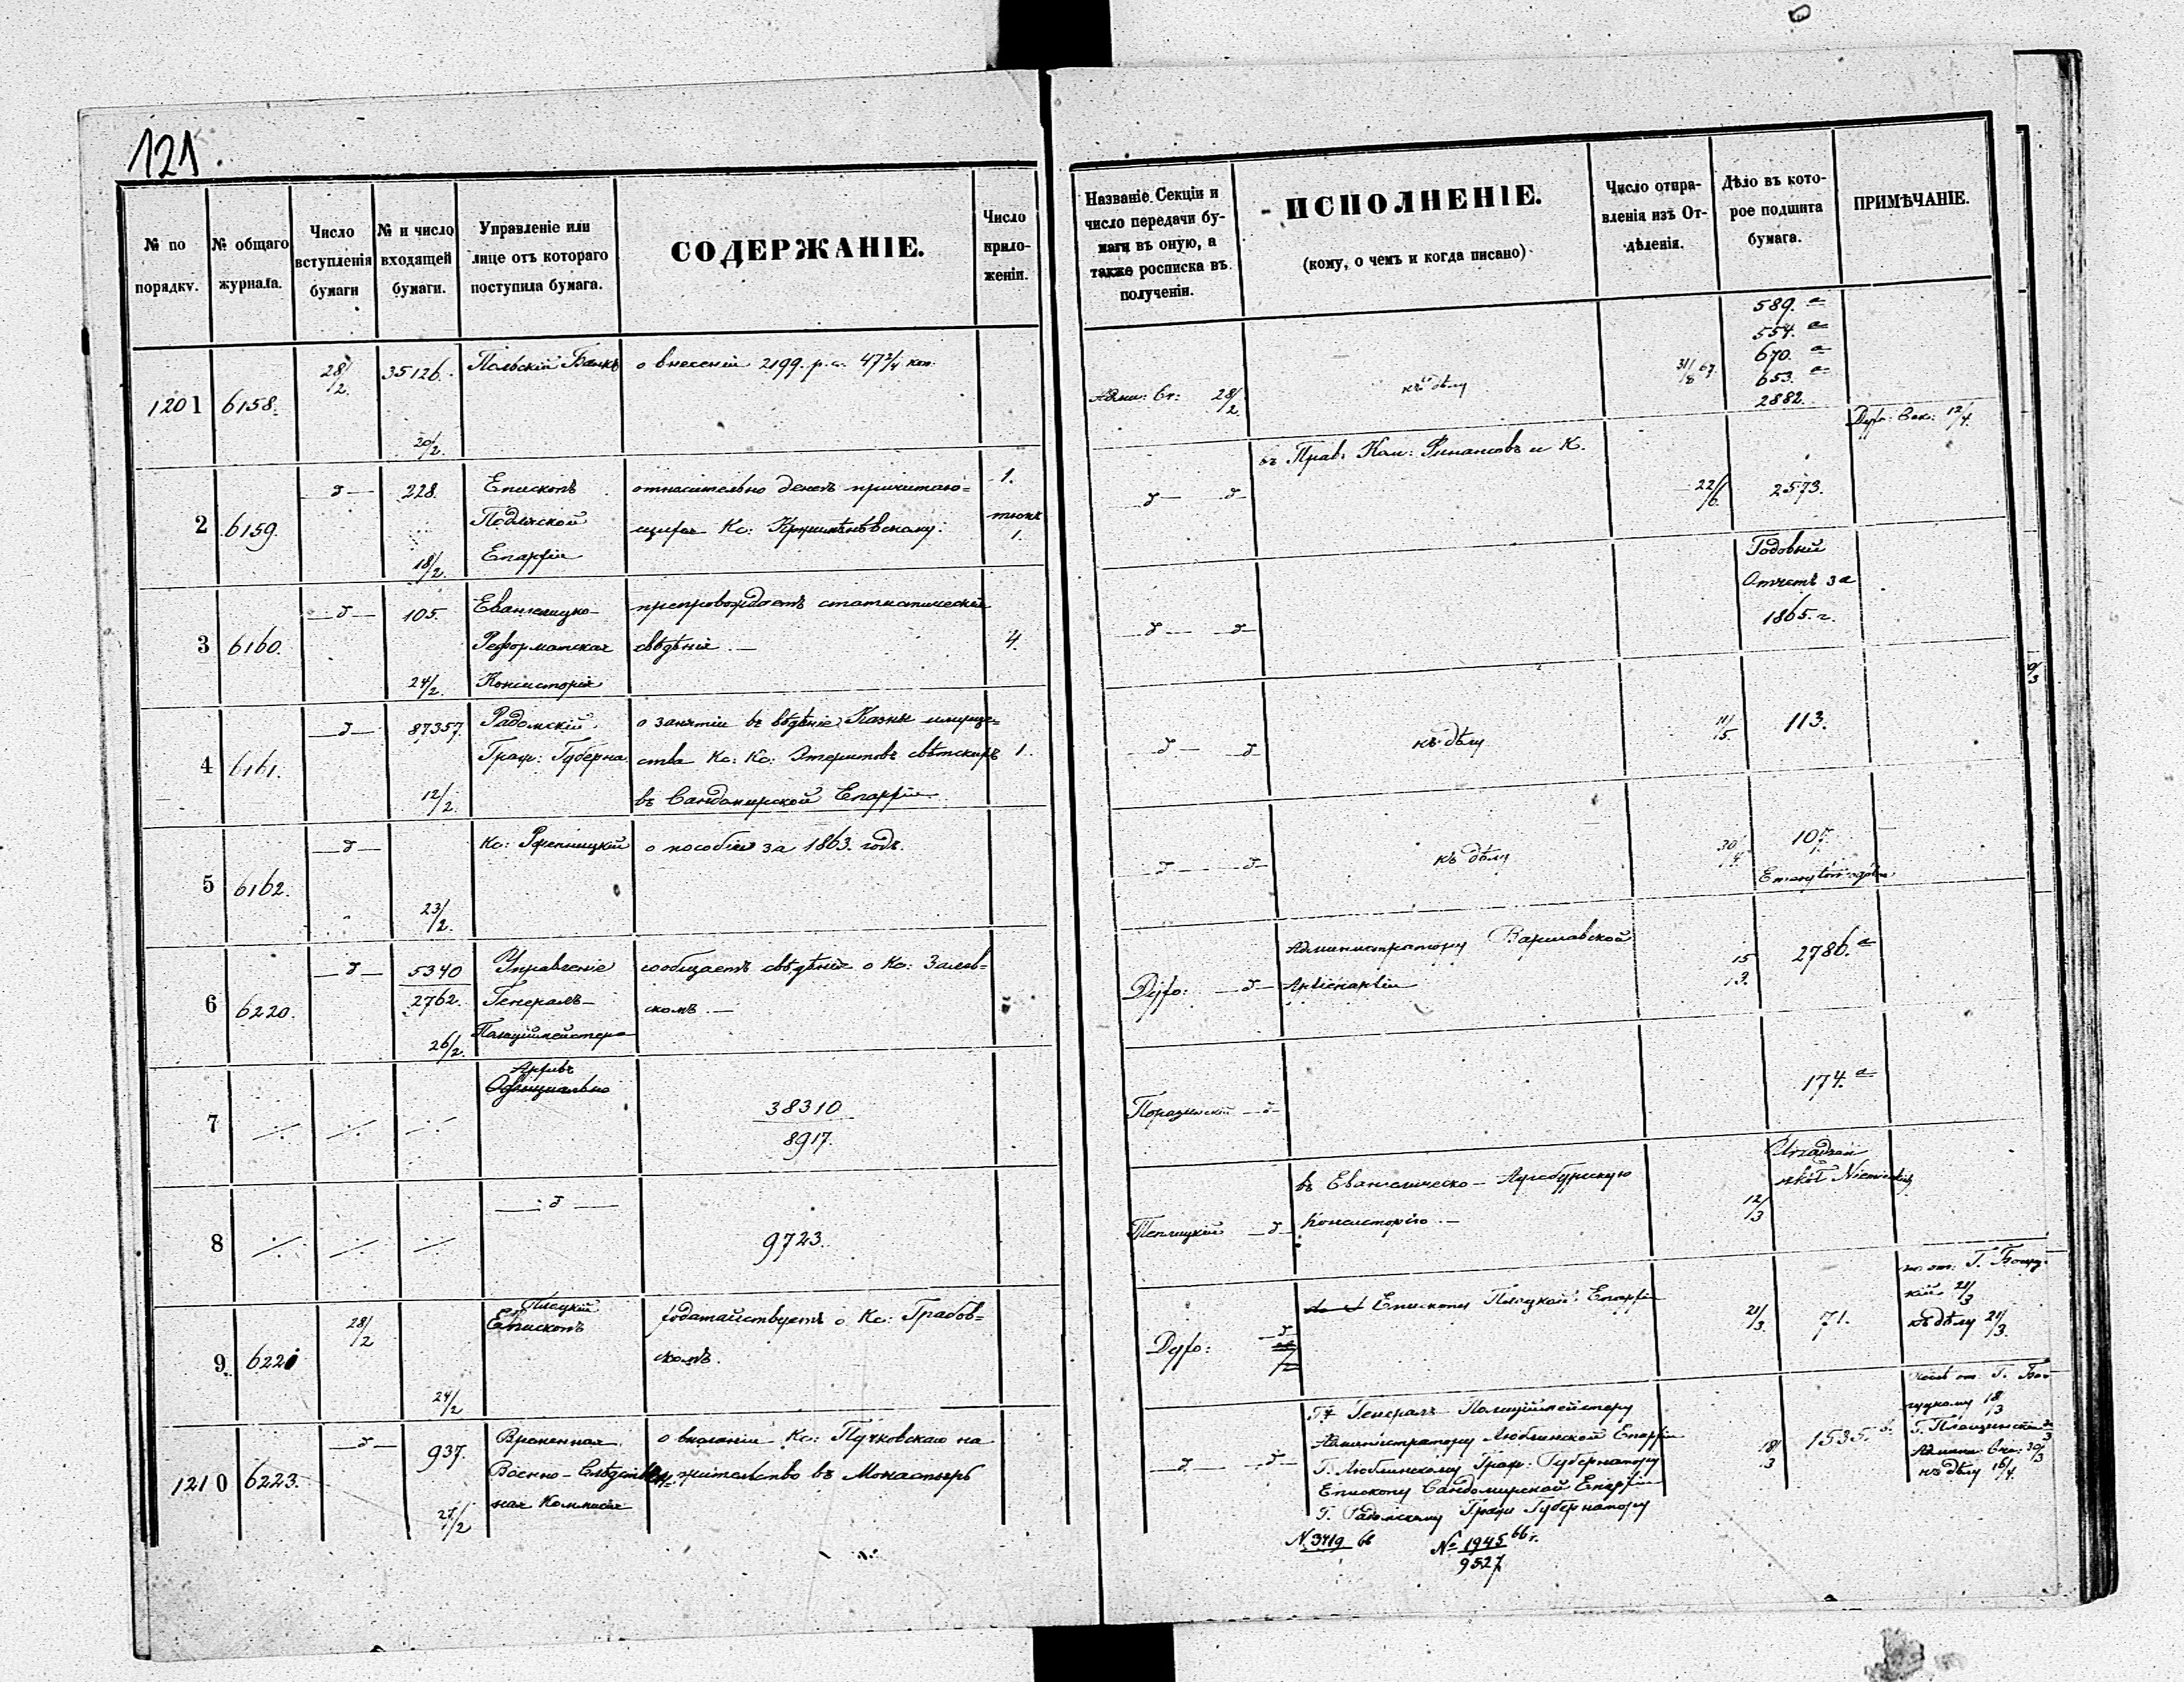 121.
№ по порядку.
№ общаго журнала.
Число вступленія бумаги
№ и число входящей бумаги.
Управленіе или лице отъ котораго поступила бумага.
СОДЕРЖАНІЕ.
Число приложеній.
Названіе Секціи и число передачи бумаги въ оную, а также росписка въ полученіи.
ИСПОЛНЕНІЕ.
(кому, о чемъ и когда писано)
Число отправленія изъ Отдѣленія.
Дѣло въ которое подшита бумага.
ПРИМѢЧАНІЕ.
1201 6158. 28/2. 35126. 20/2.
Польскій Банкъ
о внесеніи 2199. р. с. 47 3/4 коп.
28/2.
къ дѣлу
31/8 67.
589. а
554. а
670. а
653. а
2882.
2 6159. 228. 18/2.
Епископъ
Подляской
Епархіи
относительно денегъ причитаю=
щихся Кс:
1.
1.
въ Прав: Ком: Финансовъ и К.
22/6.
2573.
12/4.
3 6160. 105. 24/2.
Евангелицко-
Реформатская
Консисторія
препровождаетъ статистическія
свѣдѣнія. —
4.
Годовый
Отчетъ за
1865. г.
4 6161. 87357. 12/2.
Радомскій
Граж: Губерна
о занятіи въ вѣдѣніе Казны имуще=
ства Кс: Кс: Эмеритовъ свѣтскихъ
въ Сандомирской Епархіи
1.
къ дѣлу
11/5.
113.
5 6162. 23/2.
Кс:
о пособіи за 1863. годъ.
къ дѣлу
30/4.
107.
6 6220. 5340
2762.
26/2.
Управленіе
Генералъ-
Полиціймейстера
сообщаетъ свѣдѣнія о Кс: Залев=
скомъ. —
Администратору Варшавской
Архіепархіи
15
3.
2786. а
7
Архивъ
Официально
38310
8917.
174. а
8
9723.
Теплицкій
въ Евангелическо-Аугсбургскую
Консисторію. —
12/3
9 6221 28/2 24/2
Плоцкій
Епископъ
ходатайствуетъ о Кс: Грабов=
скомъ.
Епископу Плоцкой Епархіи
21/3.
71.
21/3
къ дѣлу 21/3.
1210 6223. 937. 27/2
Временная
Военно-Слѣдствен
ная Коммисія
о высланіи Кс: Пучковскаго на
жительство въ Монастырь
Генералъ Полиціймейстеру
Администратору Люблинской Епархіи
Г. Люблинскому Граж: Губернатору
Епископу Сандомирской Епархіи
Г. Радомскому Граж Губернатору
№ 3419 66 № 1945 66 г.
9527
18/3
1535.
18/3
къ дѣлу 16/4.